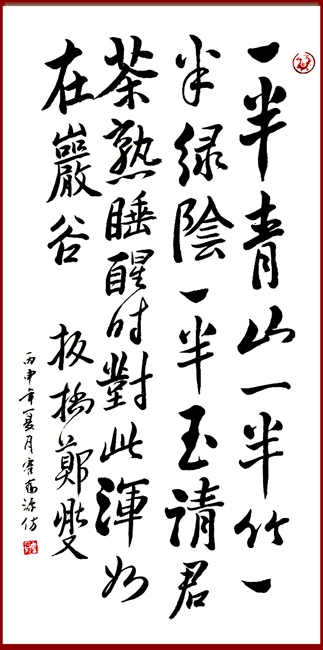 一半青山一半竹一
半绿陰一半玉請君
茶熟睡醒时對此渾如
在巖谷 板橋鄭燮
丙申年夏月霍源仿